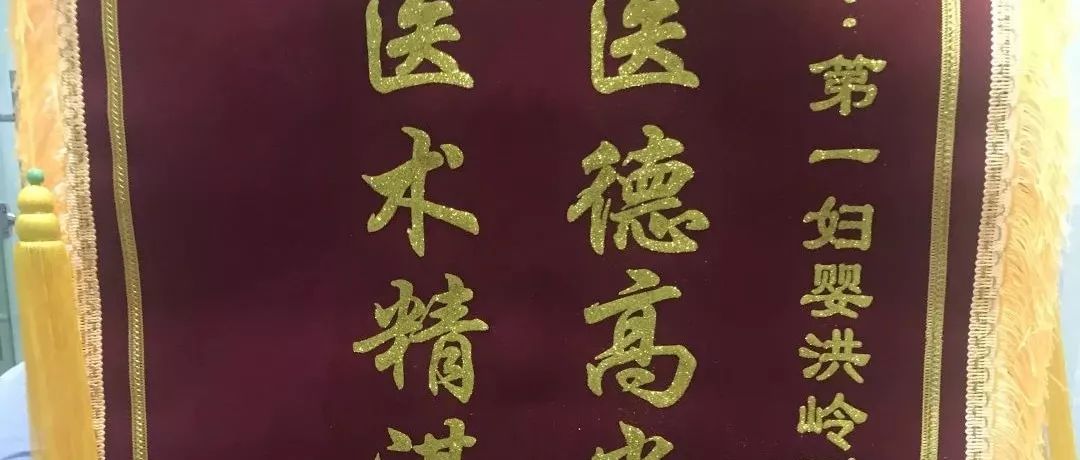 第一妇婴洪岭
医德高
医术精